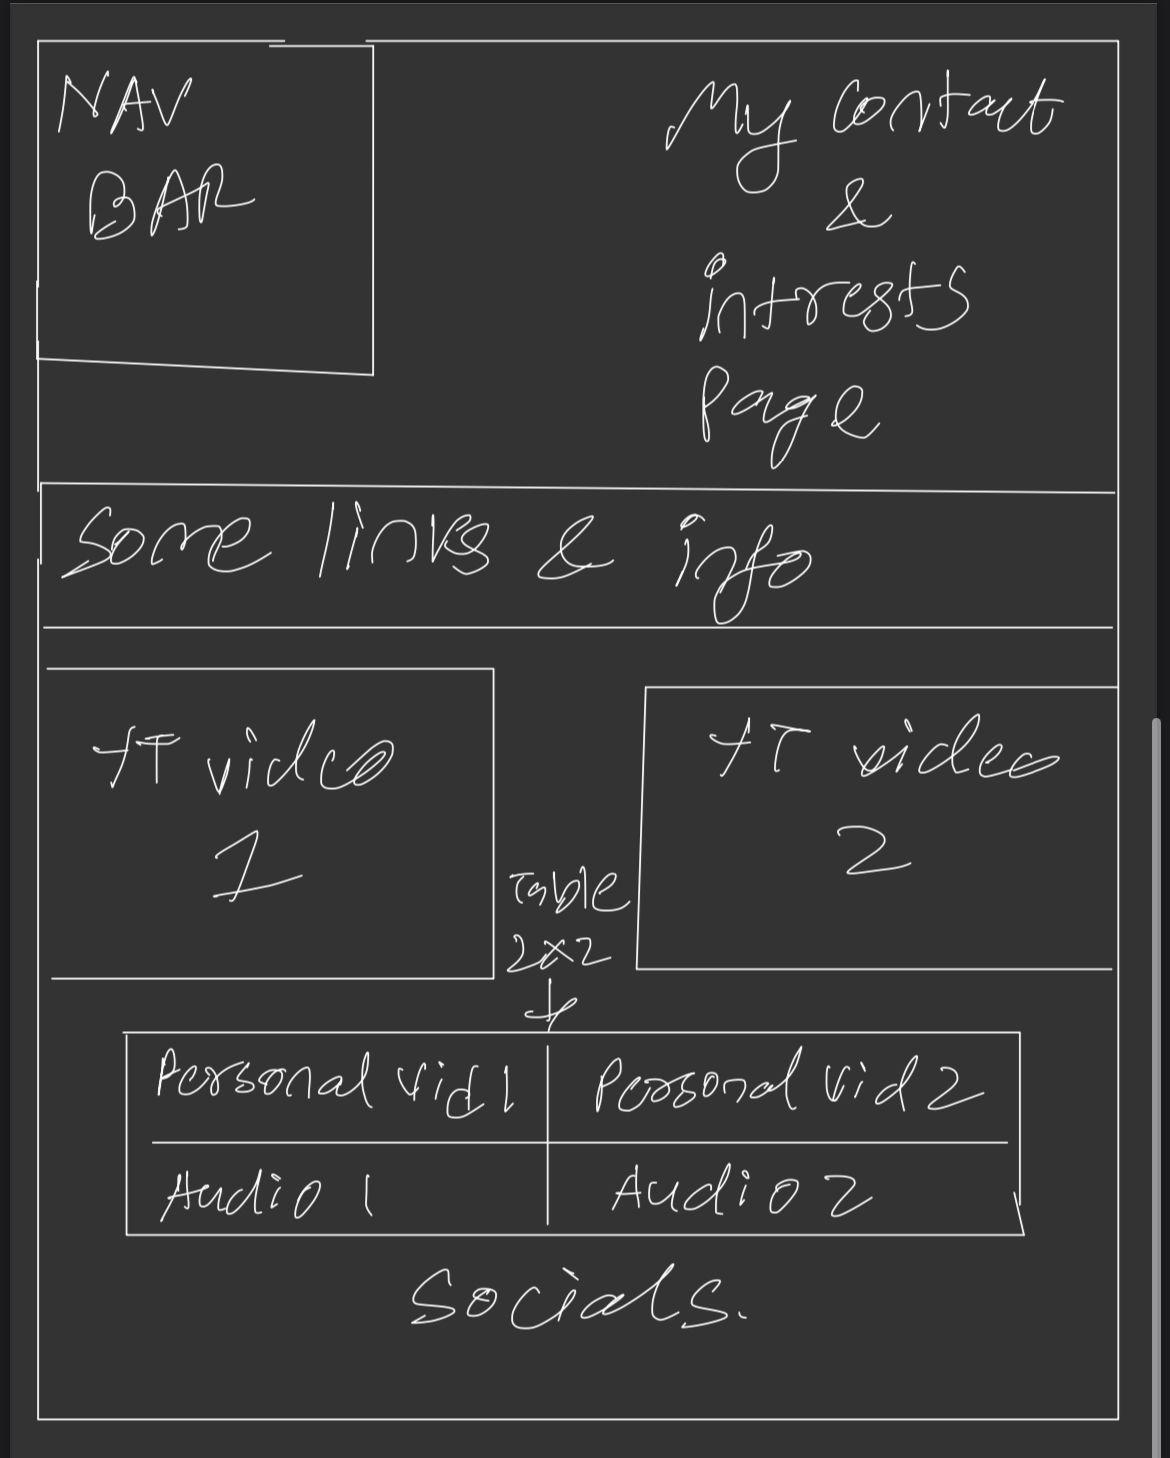 NAV
BAR
My contact
&
intrests
Page
Some links & info
YT video
1
YT video
2
Table
2x2
Personal vid 1
Personal vid 2
Audio 1
Audio 2
Socials.